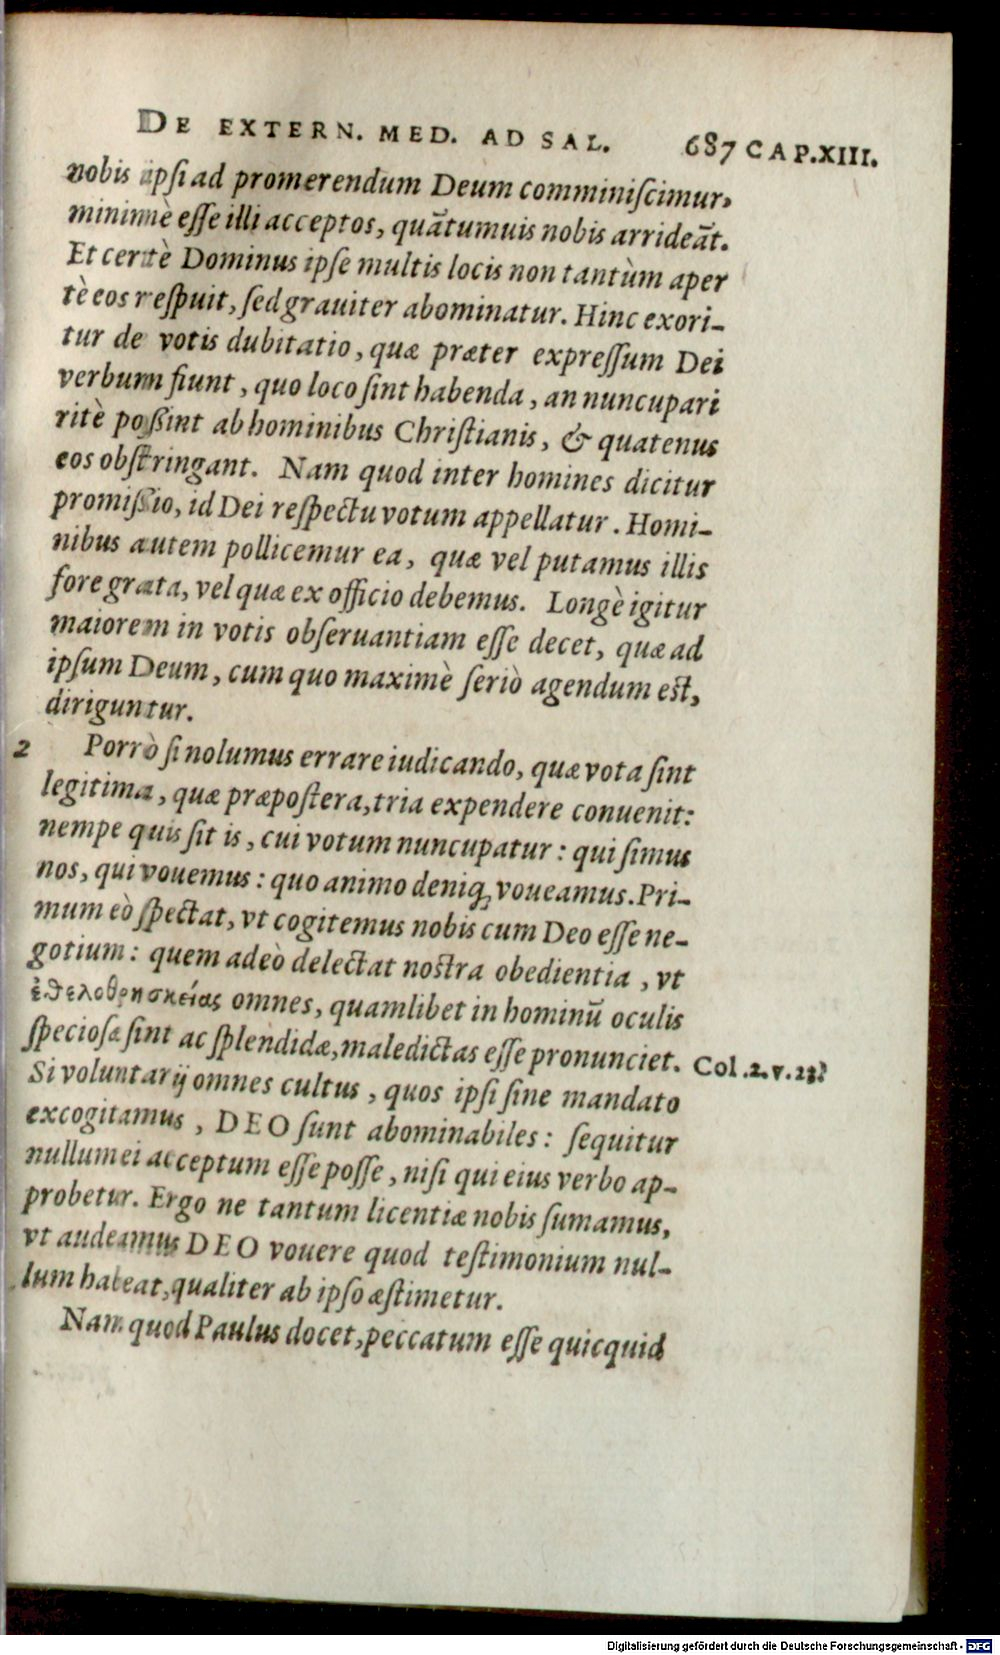 DE EXTERN. MED. AD SAL. 687 CAP.XIII.
nobis ipsi ad promerendum Deum comminiscimur,
minimè esse illi acceptos, quãtumuis nobis arrideãt.
Et certè Dominus ipse multis locis non tantùm aper
tè eos respuit, sed grauiter abominatur. Hinc exori-
tur de votis dubitatio, quæ præter expressum Dei
verbum fiunt, quo loco sint habenda, an nuncupari
ritè possint ab hominibus Christianis, & quatenus
eos obstringant. Nam quod inter homines dicitur
promissio, id Dei respectu votum appellatur. Homi-
nibus autem pollicemur ea, quæ vel putamus illis
fore grata, vel quæ ex officio debemus. Longè igitur
maiorem in votis obseruantiam esse decet, quæ ad
ipsum Deum, cum quo maximè seriò agendum est,
diriguntur.
2 Porrò si nolumus errare iudicando, quæ vota sint
legitima, quæ præpostera, tria expendere conuenit:
nempe quis sit is, cui votum nuncupatur: qui simus
nos, qui vouemus: quo animo deniq; voueamus. Pri-
mum eò spectat, vt cogitemus nobis cum Deo esse ne-
gotium: quem adeò delectat nostra obedientia, vt
ἐθελοθρησκείας omnes, quamlibet in hominũ oculis
speciosæ sint ac splendidæ, maledictas esse pronunciet. Col.2.v.23.
Si voluntarij omnes cultus, quos ipsi sine mandato
excogitamus, DEO sunt abominabiles: sequitur
nullum ei acceptum esse posse, nisi qui eius verbo ap-
probetur. Ergo ne tantum licentiæ nobis sumamus,
vt audeamus DEO vouere quod testimonium nul-
lum habeat, qualiter ab ipso æstimetur.
Nam quod Paulus docet, peccatum esse quicquid
Digitalisierung gefördert durch die Deutsche Forschungsgemeinschaft - DFG